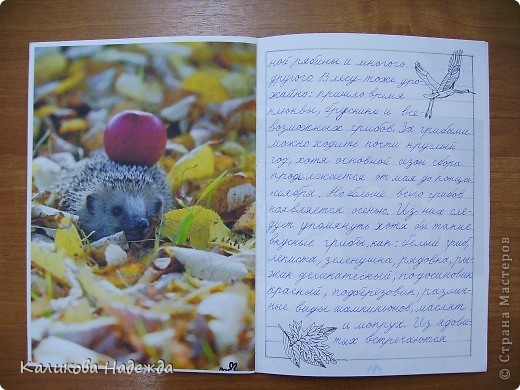 ной рябины и многого
другого. В лесу тоже уро-
жайно: пришло время
клюквы, бруснике и все-
возможных грибов. За грибами
можно ходить почти круглый
год, хотя основной сезон сбора
продолжается от мая до конца
ноября. Но больше всего грибов
появляется осенью. Из них сле-
дует упомянуть хотя бы такие
вкусные грибы, как: белый гриб,
лепиота, зеленушка, рядовка, ры-
жик деликатесный, подосиновик
красный, подберёзовик, различ-
ные виды шампиньонов, маслят
и мокрух. Из ядови-
тых встречаются
Каликова Надежда
© Страна Мастеров